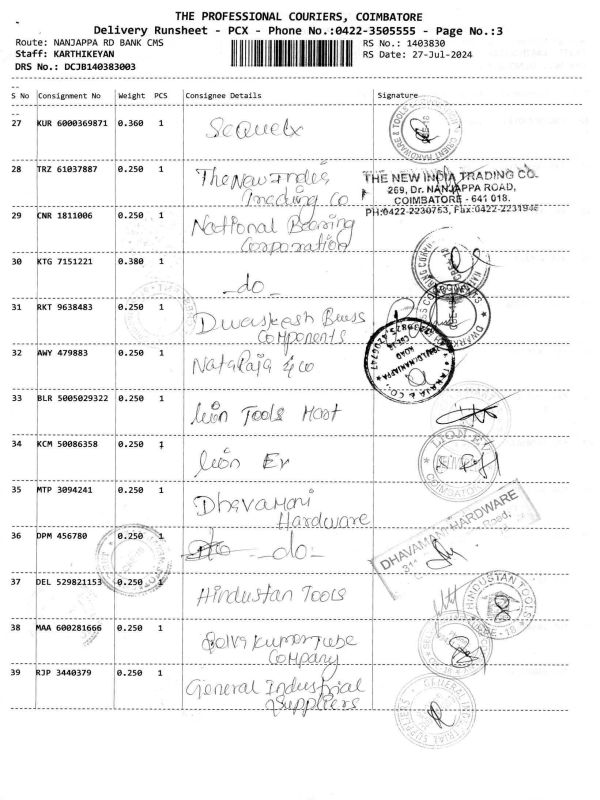 THE PROFESSIONAL COURIERS, COIMBATORE
Delivery Runsheet - PCX - Phone No.:0422-3505555 - Page No.:3
Route: NANJAPPA RD BANK CMS RS No.: 1403830
Staff: KARTHIKEYAN RS Date: 27-Jul-2024
DRS No.: DCJB140383003
S No Consignment No Weight PCS Consignee Details Signature
27 KUR 6000369871 0.360 1
28 TRZ 61037887 0.250 1 The New India
Trading Co
THE NEW INDIA TRADING CO.
269, Dr. NANJAPPA ROAD,
COIMBATORE - 641 018.
PH:0422-2230753, Fax:0422-2231946
29 CNR 1811006 0.250 1 National Bearing
Corporation
30 KTG 7151221 0.380 1 -do-
31 RKT 9638483 0.250 1
Components
32 AWY 479883 0.250 1 Nataraja & Co
33 BLR 5005029322 0.250 1 Lion Tools Mart
34 KCM 50086358 0.250 1 Lion
35 MTP 3094241 0.250 1 Dhavamani
Hardware
36 DPM 456780 0.250 1 -do-
DHAVAMANI HARDWARE
37 DEL 529821153 0.250 1 Hindustan Tools
HINDUSTAN TOOLS
38 MAA 600281666 0.250 1 Selvakumar Tube
Company
39 RJP 3440379 0.250 1 General Industrial
Suppliers